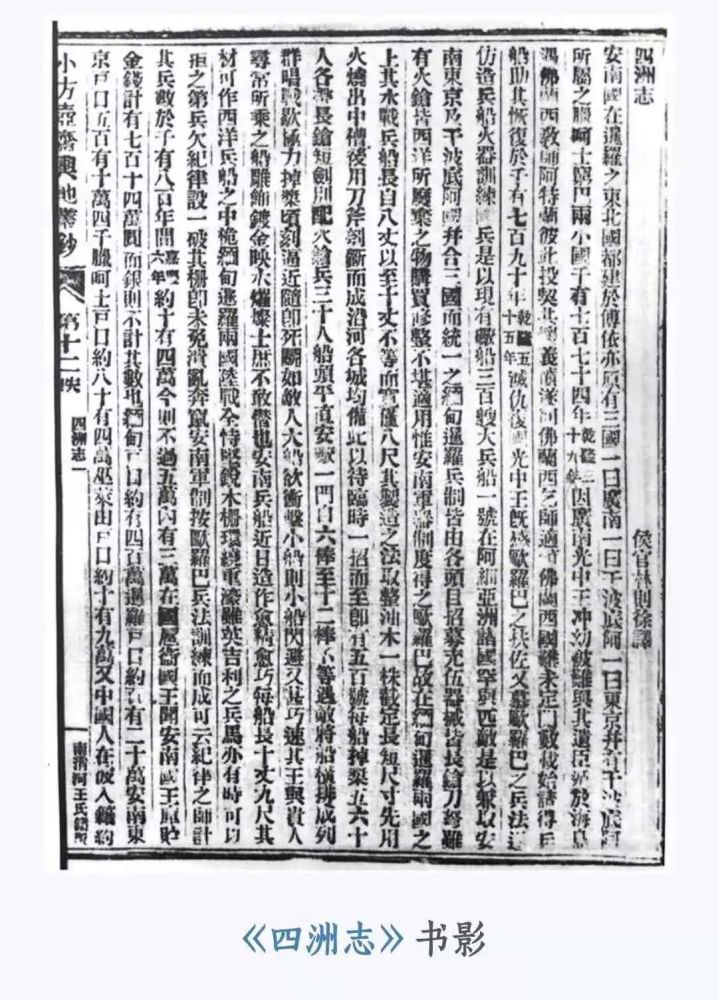 四洲志
侯官林則徐譯
安南國在暹羅之東北國都建於傅依亦原有三國一曰廣南一曰干波底阿一曰東京并有干波底阿
所屬之臘呵士 兩小國千有七百七十四年乾隆三十九年因廣南光中王冲幼被難與其遺臣 於海島
遇佛蘭西教師阿特蘭彼此投契其 義憤遂 佛蘭西乞師適 佛蘭西國難未定 數載始請得兵
船助其恢復於千有七百九十年乾隆五十五年滅仇復國光中王旣感歐羅巴之兵佐又慕歐羅巴之兵法
仿造兵船火器訓練國兵是以現有戰船三百艘大兵船一號在阿細亞洲諸國罕與匹敵是以兼以安
南東京及干波底阿國幷合三國而統一之緬甸暹羅兵制皆由各頭目招募充伍器械皆長鎗刀弩雖
有火鎗皆西洋所廢棄之物購買修整不堪適用惟安南軍器制度得之歐羅巴故在緬甸暹羅兩國之
上其水戰兵船長自八丈以至十丈不等而寬僅八尺其製造之法取整油木一株截定長短尺寸先用
火燒出中槽後用刀斧剖斵而成沿河各城均備此以待臨時一招而至卽有五百號每船掉槳五六十
人各帶長鎗短劍別配火鎗兵三十人船頭平直安礮一門自六棒至十二棒不等遇敵將船橫排成列
群唱戰歌極力掉槳頃刻逼近隨卽死鬭如敵人大船欲衝擊小船則小船閃避又甚巧速其王與貴人
尋常所乘之船雕飾鍍金映水燿燦士庶不敢僭也安南兵船近日造作愈精愈巧每船長十丈九尺其
材可作西洋兵船之中桅緬甸暹羅兩國陸戰全恃堅銳木柵環繞重濠雖英吉利之兵馬亦有時可以
拒之第兵欠紀律設一破其柵卽未免潰亂奔竄安南軍制按歐羅巴兵法訓練而成可云紀律之師計
其兵數於千有八百年間嘉慶六年約十有四萬今則不過五萬內有三萬在國處衞國王聞安南國王庫貯
金錢計有七百十四萬圓而銀則不計其數也緬甸戶口約有四百萬暹羅戶口約 有二十萬安南東
京戶口五百有十萬四千臘呵士戶口約八十有四萬巫萊由戶口約十有九萬又中國人在彼入籍約
小方壺齋輿地叢鈔
第十二帙
四洲志
一
南清河王氏鑄版
《四洲志》书影